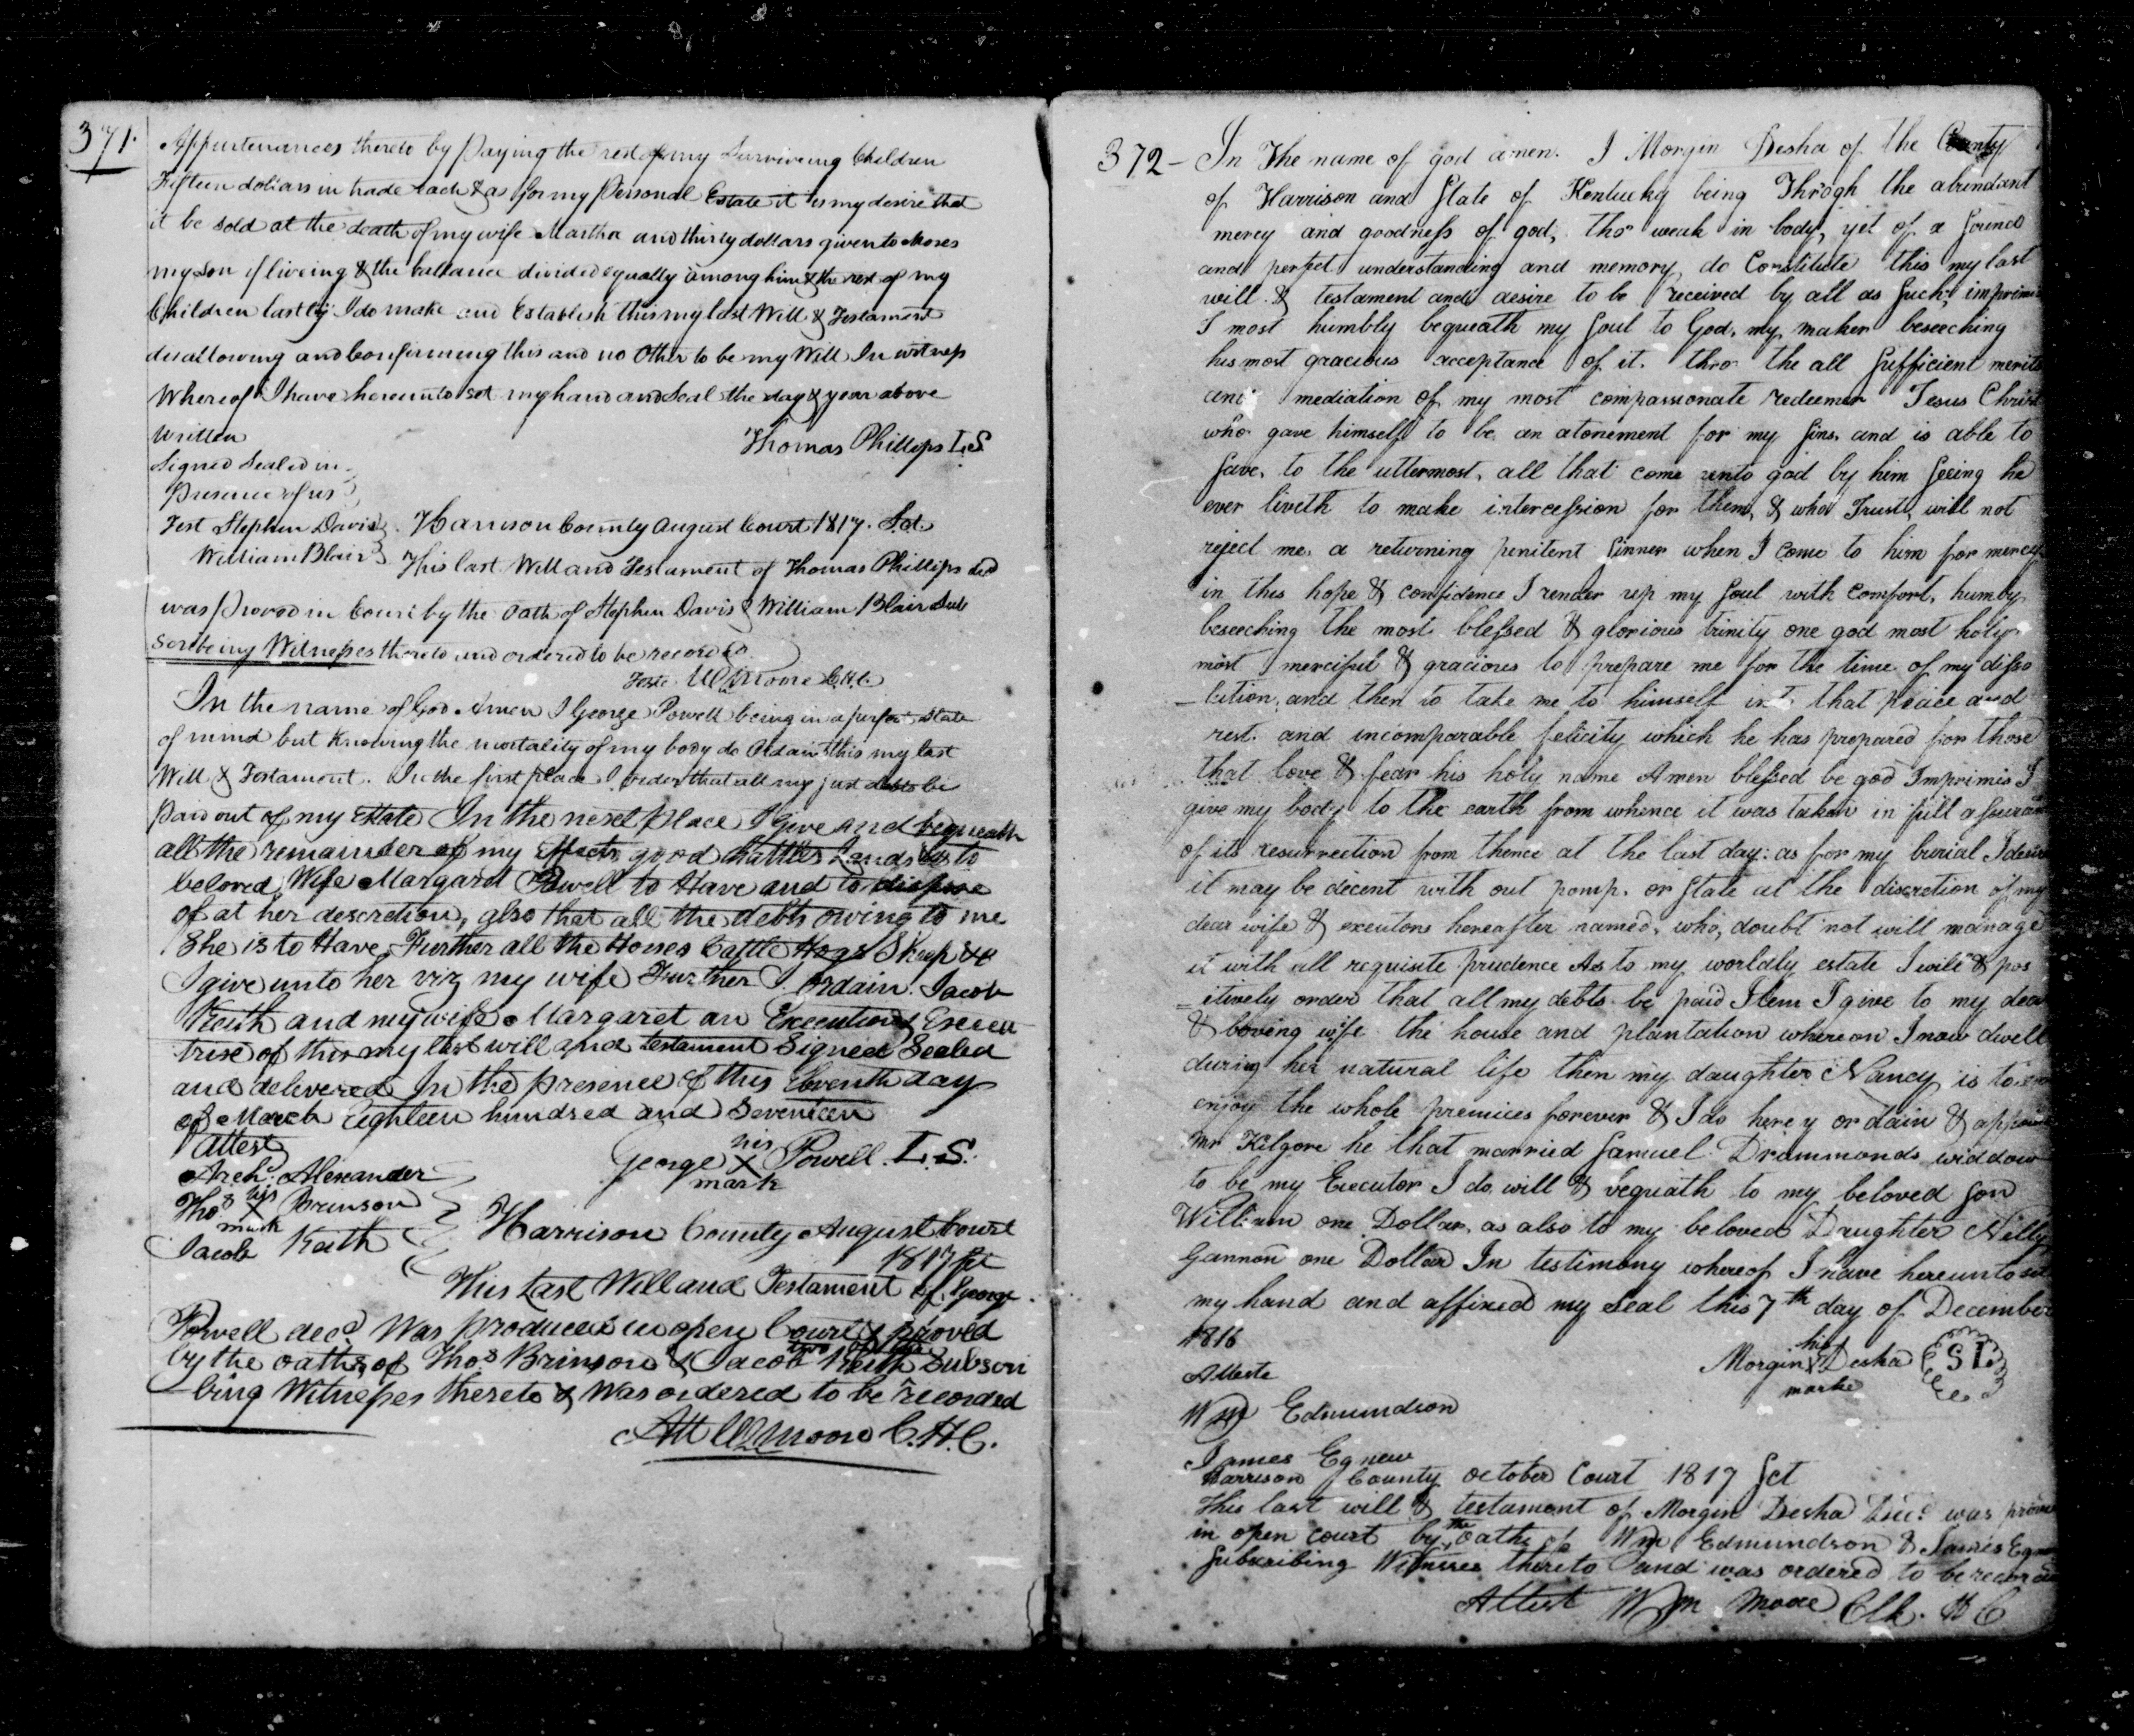 371.
Appurtenances thereto by paying the rest of my Surviveing Children
Fifteen dollars in trade each & as for my Personal Estate it is my desire that
it be sold at the death of my wife Martha and thirty dollars given to Moses
my Son if liveing & the ballance divided equally among him & the rest of my
Children lastly I do make and Establish this my last Will & Testament
disallowing and Confirming this and no Other to be my Will In witness
Whereof I have hereunto set my hand and Seal the day & year above
Written
Thomas Phillips L.S
Signed Sealed in
presence of us
Test Stephen Davis
William Blair
Harrison County August Court 1817. Sct.
This last Will and Testament of Thomas Phillips decd
was proved in Court by the Oath of Stephen Davis & William Blair Sub
scribeing Witnesses thereto and ordered to be recorded
Teste Wm Moore C.H.C.
In the name of God Amen I George Powell being in a perfect State
of mind but Knowing the mortality of my body do Ordain this my last
Will & Testament. In the first place I order that all my just debts be
paid out of my Estate In the next place I give and bequeath
all the remainder of my Effects good Chattles Lands to
beloved Wife Margaret Powell to Have and to dispose
of at her descretion, also that all the debts owing to me
She is to Have Further all the Horses Cattle Hogs Sheep &c
I give unto her viz my wife Further I ordain Jacob
Keith and my wife Margaret an Executiond Execu
trix of this my last will and testament Signed Sealed
and delivered In the presence of this Eleventh day
of March Eighteen hundred and Seventeen
Attest
George his X mark Powell. L.S.
Arch. Alexander
Thos his X mark Brinson
Jacob Keith
Harrison County August Court
1817 Sct
This Last Will and Testament of George
Powell decd Was produced in open Court & proved
by the oaths of Thos Brinson & Jacob Keith two of the Subscri
bing Witnesses thereto & Was ordered to be recorded
Att Wm Moore C.H.C.
372 - In The name of god amen. I Morgin Desha of the County
of Harrison and State of Kentucky being Throgh the abundant
mercy and goodness of god, tho' weak in body, yet of a Sound
and perfect understanding and memory, do Constitute this my last
will & testament and desire to be received by all as Such, imprimis
I most humbly bequeath my Soul to God, my maker beseeching
his most gracious acceptance of it. thro the all Sufficient merits
and mediation of my most compassionate redeemer Jesus Christ
who gave himself to be an atonement for my Sins, and is able to
Save, to the uttermost, all that come unto god by him Seeing he
ever liveth to make intercession for them, & who I Trust, will not
reject me, a returning penitent Sinner when I come to him for mercy
in this hope & confidence I render up my Soul with comfort, humby
beseeching the most blessed & glorious trinity one god most holy
most merciful & gracious to prepare me for the time of my disso
-lution, and then to take me to himself into that peace and
rest. and incomparable felicity which he has prepared for those
that love & fear his holy name Amen blessed be god Imprimis I
give my body to the earth from whence it was taken in full assurance
of its resurrection from thence at the last day: as for my burial I desire
it may be decent with out pomp. or State at the discretion of my
dear wife & executors hereafter named, who, doubt not will manage
it with all requisite prudence As to my worldly estate I will & pos
=itively order that all my debts be paid Item I give to my dear
& loving wife the house and plantation whereon I now dwell
during her natural life then my daughter Nancy is to
enjoy the whole premices forever & I do here y ordain & appoint
Mr Kilgore he that married Samuel Drummonds widdow
to be my Executor I do will & bequiath to my beloved Son
William one Dollar, as also to my beloved Daughter Nelly
Gannon one Dollar In testimony whereof I have hereunto set
my hand and affixed my Seal this 7th day of December
1816
Atteste
Morgin his X marke Desha SL
Wm Edmundson
James Egnew
Harrison County October Court 1817 Sct
This last will & testament of Morgin Desha Decd was proven
in open court by the oaths of Wm Edmundson & James Egnew
Subscribing Witnesses thereto and was ordered to be recorded
Attest Wm Moore Clk. H C